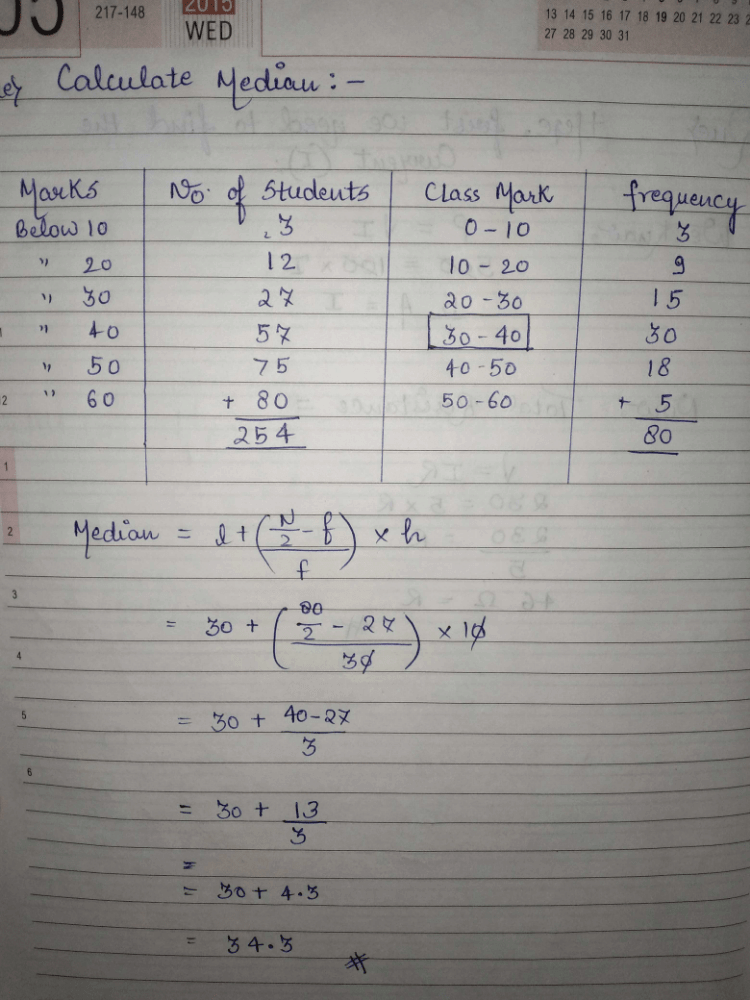 217-148
2015
WED
13 14 15 16 17 18 19 20 21 22 23
27 28 29 30 31
Calculate Median :-
Marks No. of Students Class Mark frequency
Below 10 3 0-10 3
" 20 12 10-20 9
" 30 27 20-30 15
" 40 57 30-40 30
" 50 75 40-50 18
" 60 + 80 50-60 + 5
254 80
Median = l + (N/2 - f / f) × h
= 30 + (80/2 - 27 / 30) × 10
= 30 + 40-27 / 3
= 30 + 13/3
=
= 30 + 4.3
= 34.3 #
1
2
3
4
5
6